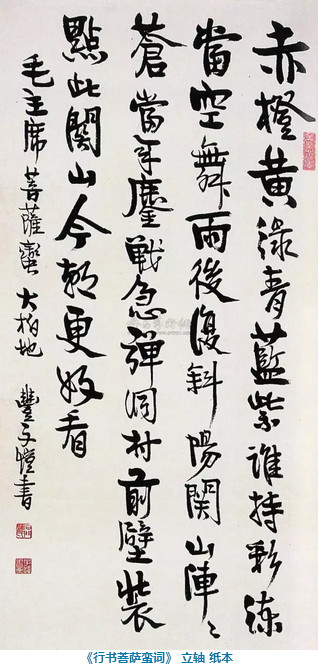 赤橙黃綠青藍紫誰持彩練
當空舞雨後復斜陽関山陣〻
蒼當年鏖戰急彈洞村前壁裝
點此關山今朝更好看
毛主席菩薩蠻 大柏地 豐子愷書
《行书菩萨蛮词》 立轴 纸本